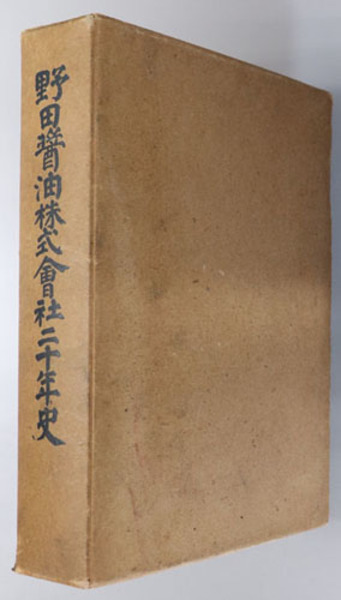 野田醬油株式會社二十年史